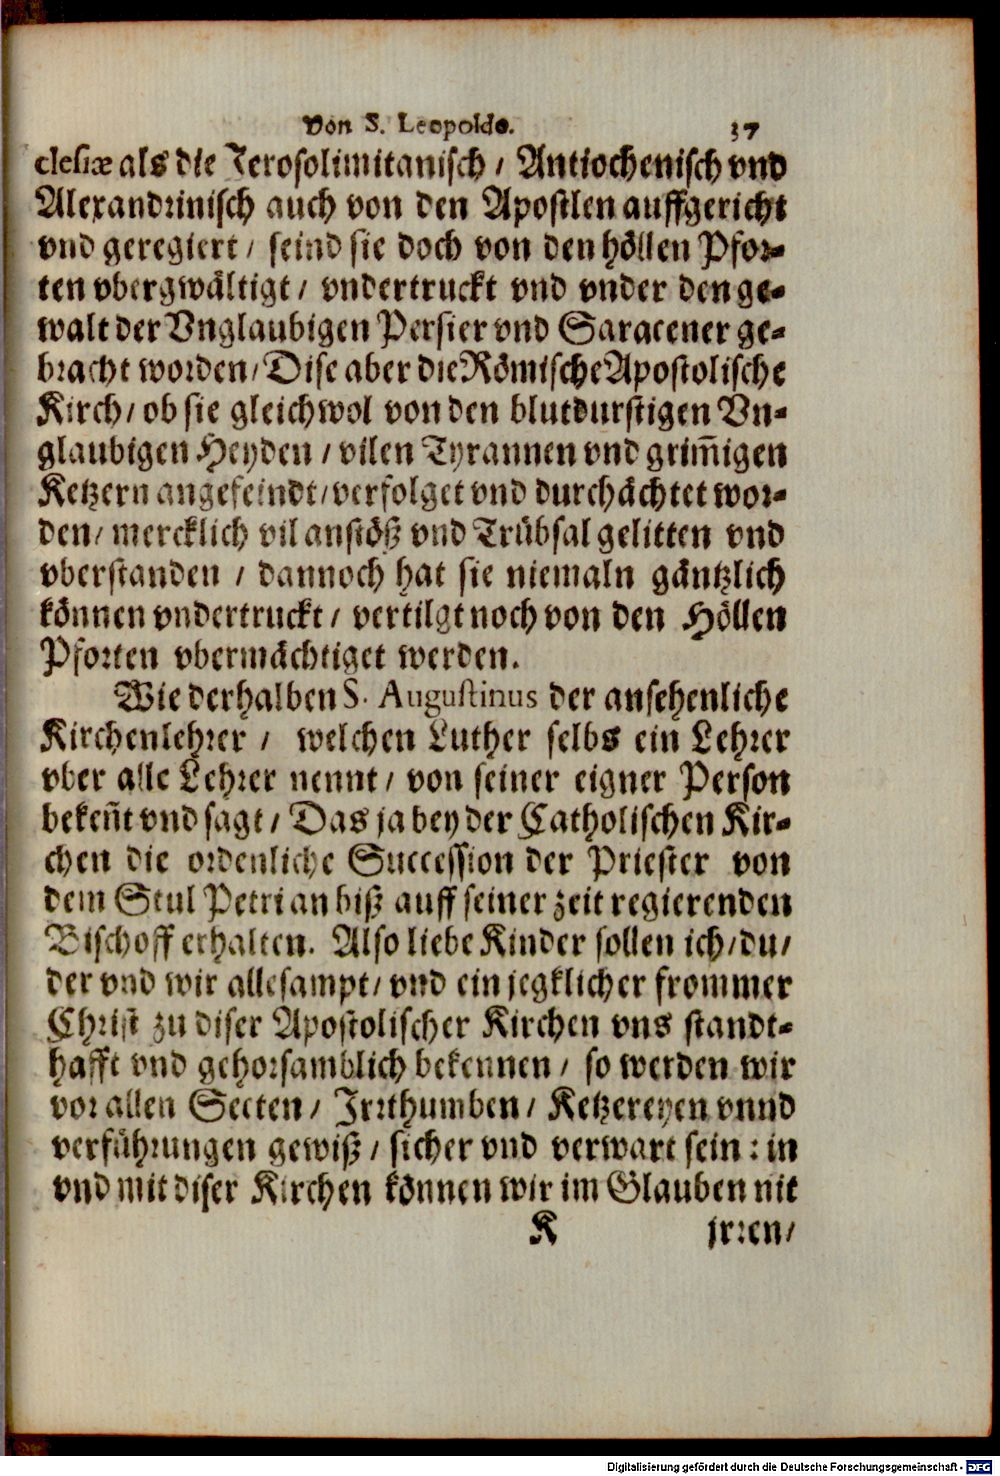 Von S. Leopoldo. 37
clesiæ als die Jerosolimitanisch / Antiochenisch vnd
Alexandrinisch auch von den Apostlen auffgericht
vnd geregiert / seind sie doch von den höllen Pfor-
ten vbergwältigt / vndertruckt vnd vnder den ge-
walt der Vnglaubigen Persier vnd Saracener ge-
bracht worden / Dise aber die Römische Apostolische
Kirch / ob sie gleichwol von den blutdurstigen Vn-
glaubigen Heyden / vilen Tyrannen vnd grim̃igen
Ketzern angefeindt / verfolget vnd durchächtet wor-
den / mercklich vil anstöß vnd Trübsal gelitten vnd
vberstanden / dannoch hat sie niemaln gäntzlich
können vndertruckt / vertilgt noch von den Höllen
Pforten vbermächtiget werden.
Wie derhalben S. Augustinus der ansehenliche
Kirchenlehrer / welchen Luther selbs ein Lehrer
vber alle Lehrer nennt / von seiner eigner Person
bekeñt vnd sagt / Das ja bey der Catholischen Kir-
chen die ordenliche Succession der Priester von
dem Stul Petri an biß auff seiner zeit regierenden
Bischoff erhalten. Also liebe Kinder sollen ich / du /
der vnd wir allesampt / vnd ein jegklicher frommer
Christ zu diser Apostolischer Kirchen vns standt-
hafft vnd gehorsamblich bekennen / so werden wir
vor allen Secten / Jrrthumben / Ketzereyen vnnd
verführungen gewiß / sicher vnd verwart sein : in
vnd mit diser Kirchen können wir im Glauben nit
K jrren /
Digitalisierung gefördert durch die Deutsche Forschungsgemeinschaft - DFG